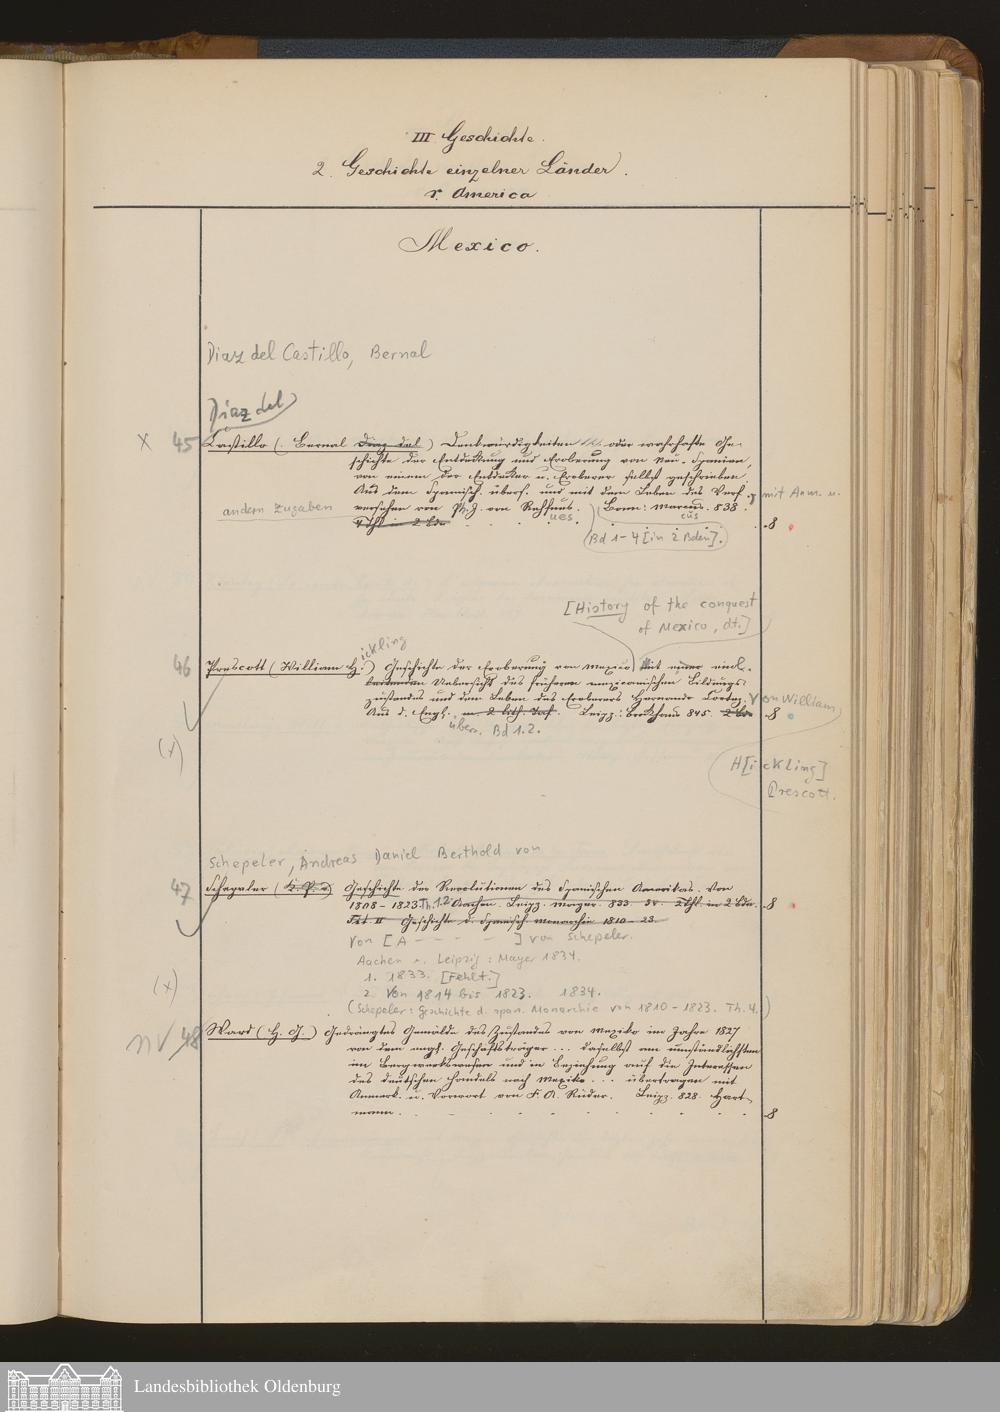 III Geschichte.
2. Geschichte einzelner Länder.
r. America
Mexico.
Diaz del Castillo, Bernal
Diaz del
X 45 Castillo (. Bernal Diaz del) Denkwürdigkeiten oder wahrhafte Ge-
schichte der Entdeckung und Eroberung von Neu-Spanien,
von einem der Entdecker u. Eroberer selbst geschrieben.
Aus dem Spanisch. übers. und mit dem Leben des Verf. mit Anm. u.
andern Zugaben versehen von Ph. J. von Rehfues. Bonn: Marcus. 838.
ues cus
4 Thl in 2 Bde 8
Bd 1-4 [in 2 Bden].
[History of the conquest
of Mexico, dt.]
ickling
46 Prescott (William H.) Geschichte der Eroberung von Mexico mit einer einl.
leitenden Uebersicht des früheren mexicanischen Bildungs-
zustandes und dem Leben des Eroberers Hernando Cortez. Von William
Aus d. Engl. m. 2 lith. Taf. Leipz: Brockhaus 845. 2 Bde 8
übers. Bd 1.2.
(x)
H[ickling]
Prescott.
Schepeler, Andreas Daniel Berthold von
47 Schepeler ( ) Geschichte der Revolutionen des Spanischen Amerikas. Von
1808-1823 Th. 1.2 Aachen. Leipz. Mayer. 833-34. 2 Thl. in 2 Bde. 8
Geschichte d. Spanisch. Monarchie 1810-23.
Von [A - - - - ] von Schepeler.
Aachen u. Leipzig: Mayer 1834.
1. 1833. [Fehlt.]
(x) 2. Von 1814 bis 1823. 1834.
(Schepeler: Geschichte d. span. Monarchie von 1810-1823. Th. 4.)
48 Ward (H. G.) Gedrängtes Gemälde des Zustandes von Mexiko im Jahre 1827
von dem engl. Geschäftsträger ... daselbst am umständlichsten
im Bergwerkswesen und in Beziehung auf die Interessen
des deutschen Handels nach Mexiko ... übertragen mit
Anmerk. u. Vorwort von F. A. Rüder. Leipz. 828. Hart-
mann. 8
Landesbibliothek Oldenburg